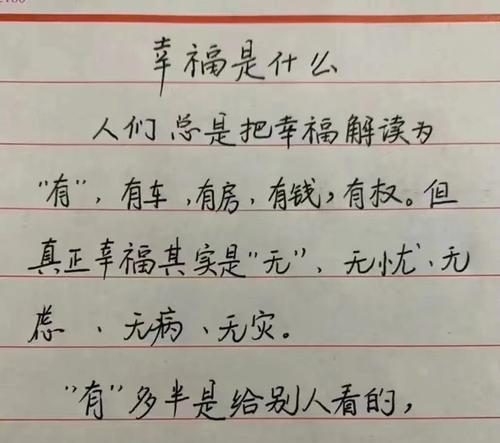 幸福是什么
人们总是把幸福解读为
"有",有车,有房,有钱,有权。但
真正幸福其实是"无"、无忧、无
虑、无病、无灾。
"有"多半是给别人看的,